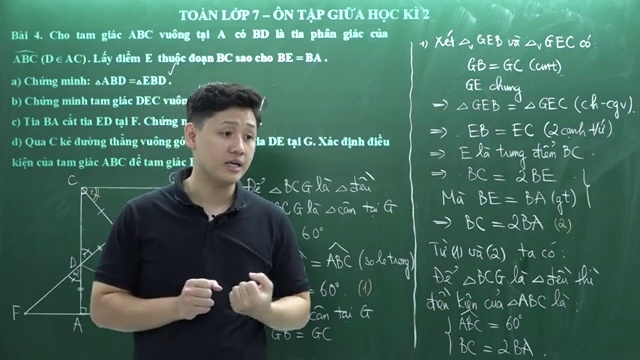 TOÁN LỚP 7 – ÔN TẬP GIỮA HỌC KÌ 2
Bài 4. Cho tam giác ABC vuông tại A có BD là tia phân giác của
ABC (D ∈ AC). Lấy điểm E thuộc đoạn BC sao cho BE = BA .
a) Chứng minh: △ABD = △EBD .
b) Chứng minh tam giác DEC vuông
c) Tia BA cắt tia ED tại F. Chứng
d) Qua C kẻ đường thẳng vuông gó
ia DE tại G. Xác định điều
kiện của tam giác ABC để tam giác
C
D
F
A
Để △BCG là △ đều
BCG là △ cân tại G
60°
= ABC (so le trong)
= 60° (1)
cân tại G
GB = GC
+) Xét △v GEB và △v GEC có
GB = GC (cmt)
GE chung
⇒ △GEB = △GEC (ch-cgv)
⇒ EB = EC (2 cạnh t/ứ)
⇒ E là trung điểm BC.
⇒ BC = 2BE
Mà BE = BA (gt)
⇒ BC = 2BA (2)
Từ (1) và (2) ta có:
Để △BCG là △ đều thì
điều kiện của △ABC là:
ABC = 60°
BC = 2BA